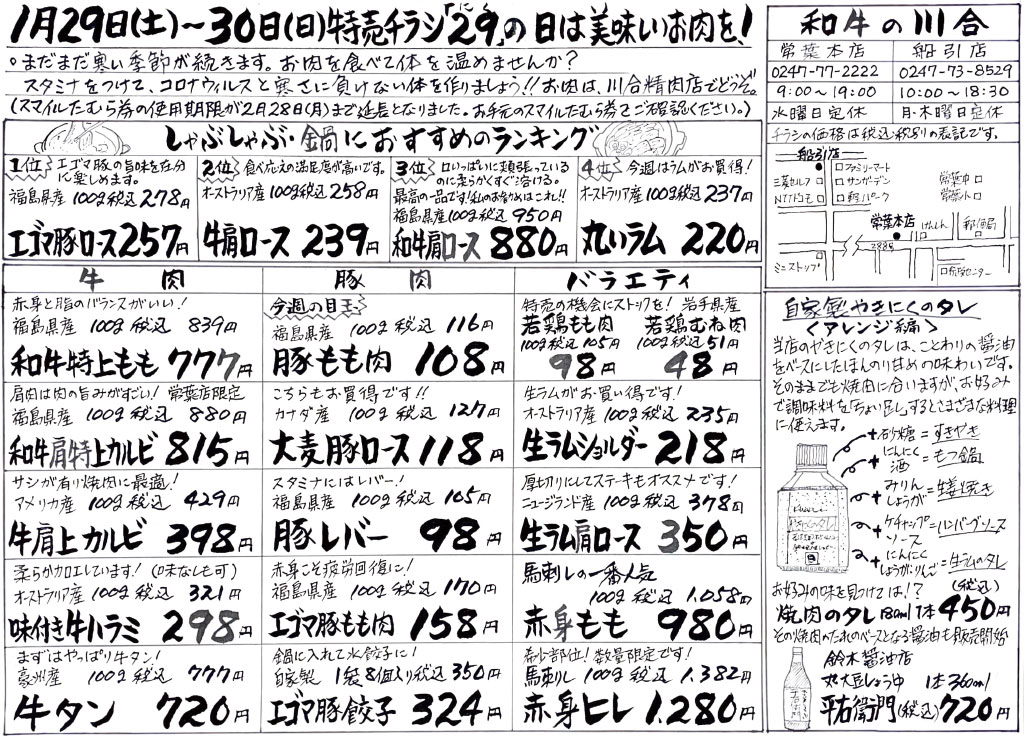 1月29日(土)～30日(日)特売チラシ「29」の日は美味いお肉を!
にく
まだまだ寒い季節が続きます。お肉を食べて体を温めませんか?
スタミナをつけて、コロナウィルスと寒さに負けない体を作りましょう!!お肉は、川合精肉店でどうぞ。
(スマイルたむら券の使用期限が2月28日(月)まで延長となりました。お手元のスマイルたむら券をご確認ください。)
しゃぶしゃぶ・鍋におすすめのランキング
1位 エゴマ豚の旨味を充分に楽しめます。
福島県産 100g税込278円
エゴマ豚ロース257円
2位 食べ応えの満足度が高いです。
オーストラリア産 100g税込258円
牛肩ロース 239円
3位 口いっぱいに頬張っているのに柔らかくすぐ溶ける。
最高の一品です!私のお勧めはこれ!!
福島県産100g税込950円
和牛肩ロース 880円
4位 今週はラムがお買得!
オーストラリア産 100g税込237円
丸いラム 220円
牛肉
赤身と脂のバランスがいい!
福島県産 100g税込 839円
和牛特上もも 777円
肩肉は肉の旨みがすごい! 常葉店限定
福島県産 100g税込 880円
和牛肩特上カルビ 815円
サシが有り焼肉に最適!
アメリカ産 100g税込 429円
牛肩上カルビ 398円
柔らか加工しています!(味なしも可)
オーストラリア産 100g税込 321円
味付き牛ハラミ 298円
まずはやっぱり牛タン!
豪州産 100g税込 777円
牛タン 720円
豚肉
今週の目玉
福島県産 100g税込 116円
豚もも肉 108円
こちらもお買得です!!
カナダ産 100g税込 127円
大麦豚ロース 118円
スタミナにはレバー!
福島県産 100g税込 105円
豚レバー 98円
赤身こそ疲労回復に!
福島県産 100g税込 170円
エゴマ豚もも肉 158円
鍋に入れて水餃子に!
自家製 1袋8個入り税込350円
エゴマ豚餃子 324円
バラエティ
特売の機会にストックを! 岩手県産
若鶏もも肉 若鶏むね肉
100g税込105円 100g税込51円
98円 48円
生ラムがお買い得です!
オーストラリア産 100g税込 235円
生ラムショルダー 218円
厚切りにしてステーキもオススメです!
ニュージランド産 100g税込 378円
生ラム肩ロース 350円
馬刺しの一番人気
100g税込 1.058円
赤身もも 980円
希少部位!数量限定です!
馬刺し 100g税込 1.382円
赤身ヒレ 1.280円
和牛の川合
常葉本店 船引店
0247-77-2222 0247-73-8529
9:00～19:00 10:00～18:30
水曜日定休 月・木曜日定休
チラシの価格は税込・税別の表記です。
船引店
ファミリーマート
三菱セルフ サンガーデン
NTTドコモ 軽パーク
常葉中
常葉小
常葉本店
げんせん
郵便局
288号
ミニストップ
自家製やきにくのタレ
<アレンジ編>
当店のやきにくのタレは、ことわりの醤油
をベースにしたほんのり甘めの味わいです。
そのままでも焼肉に合いますが、お好み
で調味料を「ちょい足し」するとさまざまな料理
に使えます。
+砂糖=すきやき
+にんにく 酒=もつ鍋
+みりん しょうが=生姜焼き
+ケチャップ ソース=ハンバーグソース
+にんにく しょうが・りんご=生ラムのタレ
お好みの味を見つけては!?
(税込)
焼肉のタレ 180ml 1本450円
その焼肉のたれのベースとなる醤油も販売開始
鈴木醤油店
丸大豆しょうゆ 1本360ml
平右衛門(税込)720円